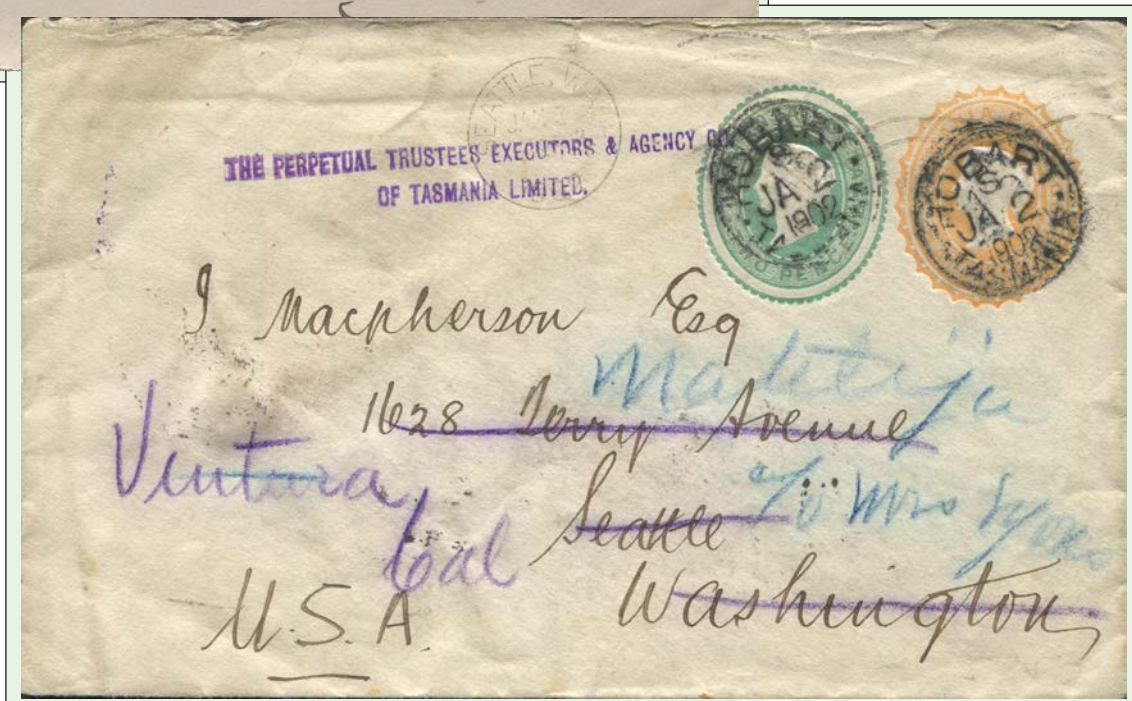 SEATTLE, WA
THE PERPETUAL TRUSTEES EXECUTORS & AGENCY CO
OF TASMANIA LIMITED.
HOBART
JA
1902
TWO PENCE
HOBART
JA
1902
TASMANIA
J. Macpherson Esq
Matilija
1628 Terry Avenue
Ventura
Seattle
c/o Mrs
Cal
Washington
U.S.A.